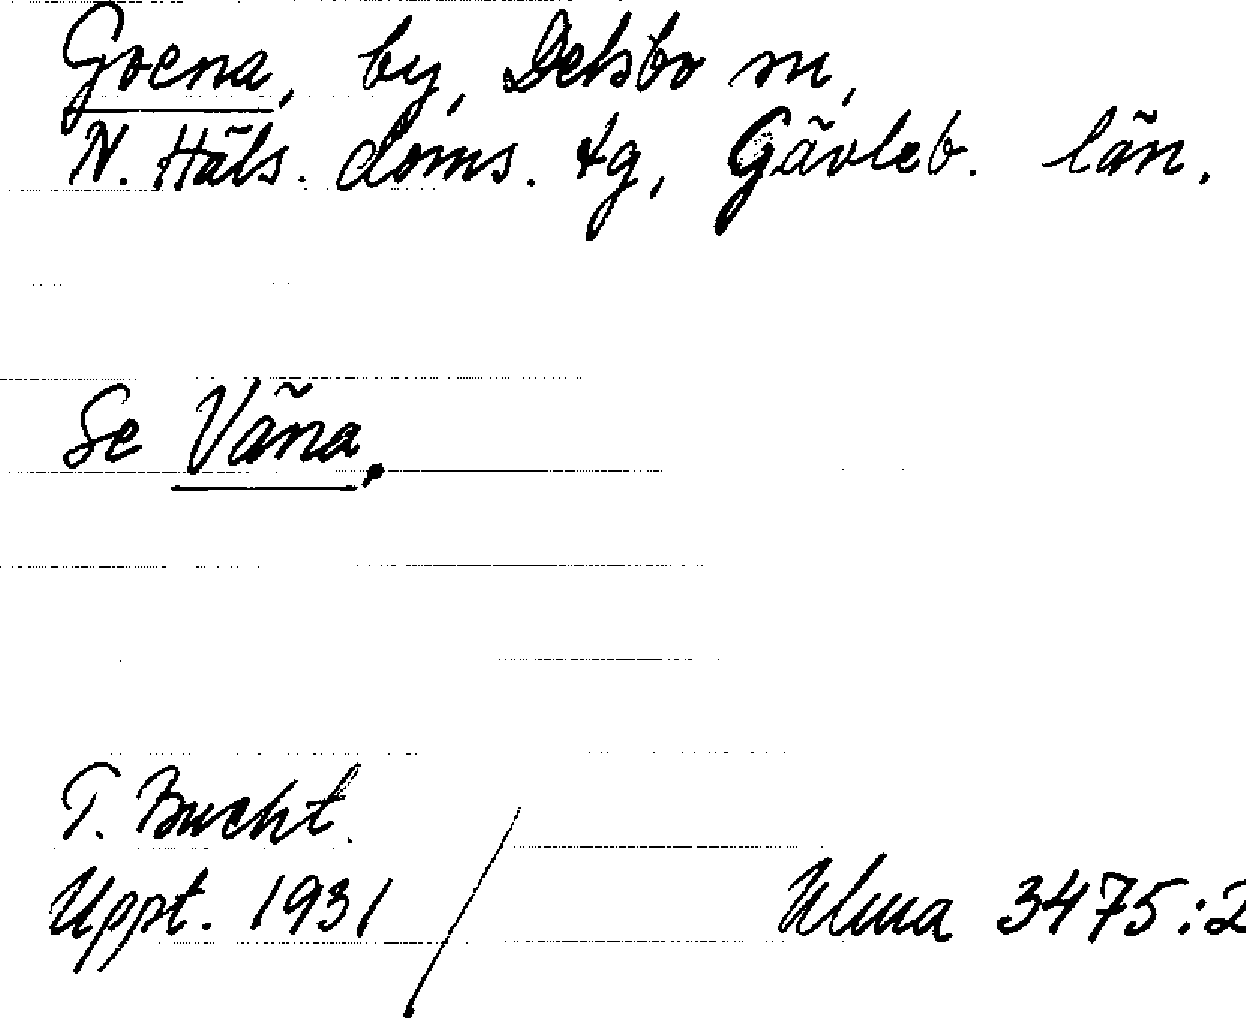 Goena, by, Delsbo sn,
N. Häls. doms. tg, Gävleb. län.
Se Väna.
T. Bucht.
Uppt. 1931 / Ulma 3475:2